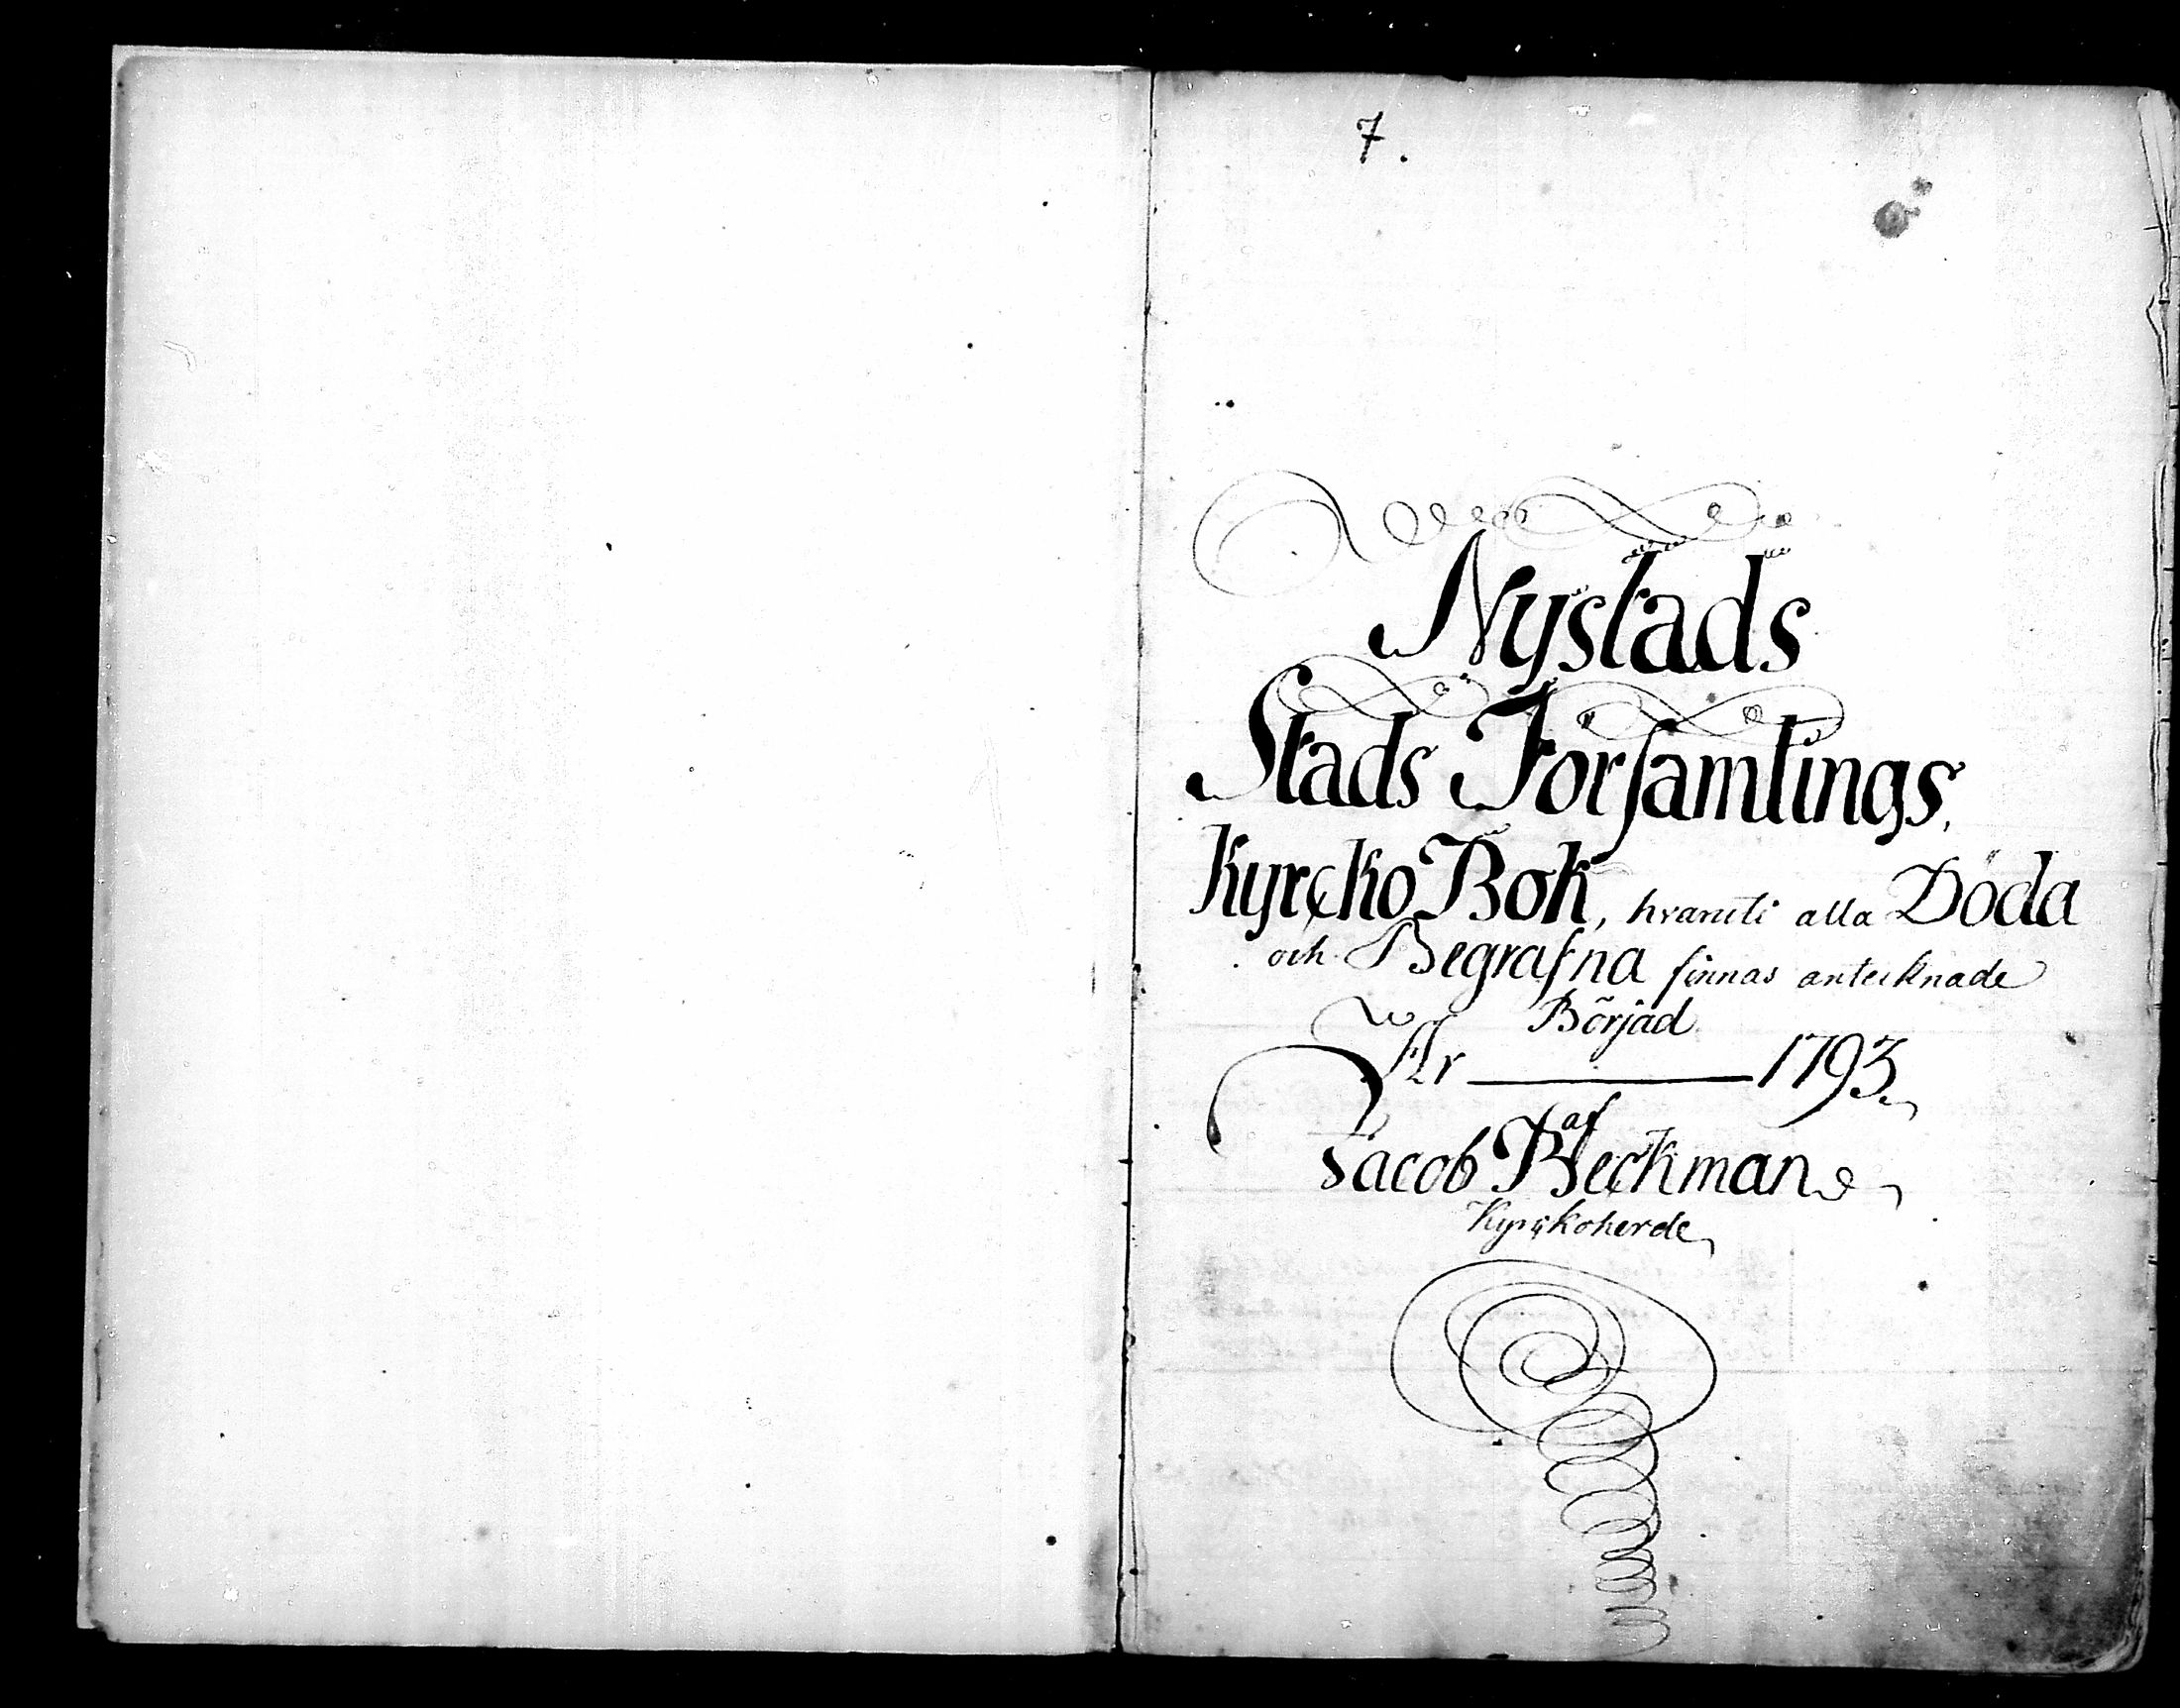 7.
Nystads
Stads Församlings,
Kyrcko Bok, hvaruti alla Döda
och Begrafna finnas antecknade
Börjad
År 1793
af
Jacob Beckman
Kyrckoherde